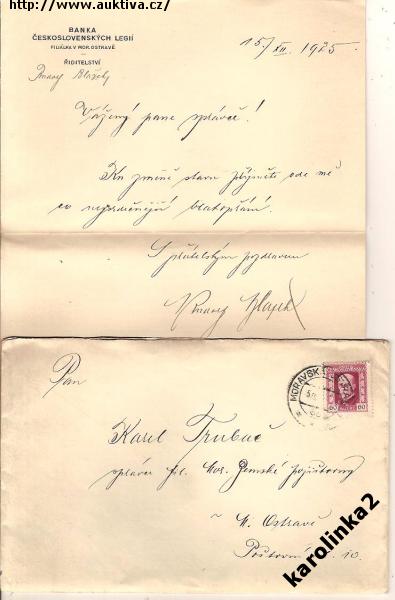 http://www.auktiva.cz/
BANKA
ČESKOSLOVENSKÝCH LEGIÍ
FILIÁLKA V MOR. OSTRAVĚ
ŘIDITELSTVÍ
15/XII. 1925
Vážený pane správče!
Ku změně stavu přijměte ode mě
co nejsrdečnější blahopřání.
S přátelským pozdravem
MORAVSK
60 60
Pan
Karel Trubač
správce fil. Mor. Zemské pojišťovny
M. Ostravě
Poštovní 10.
karolinka2